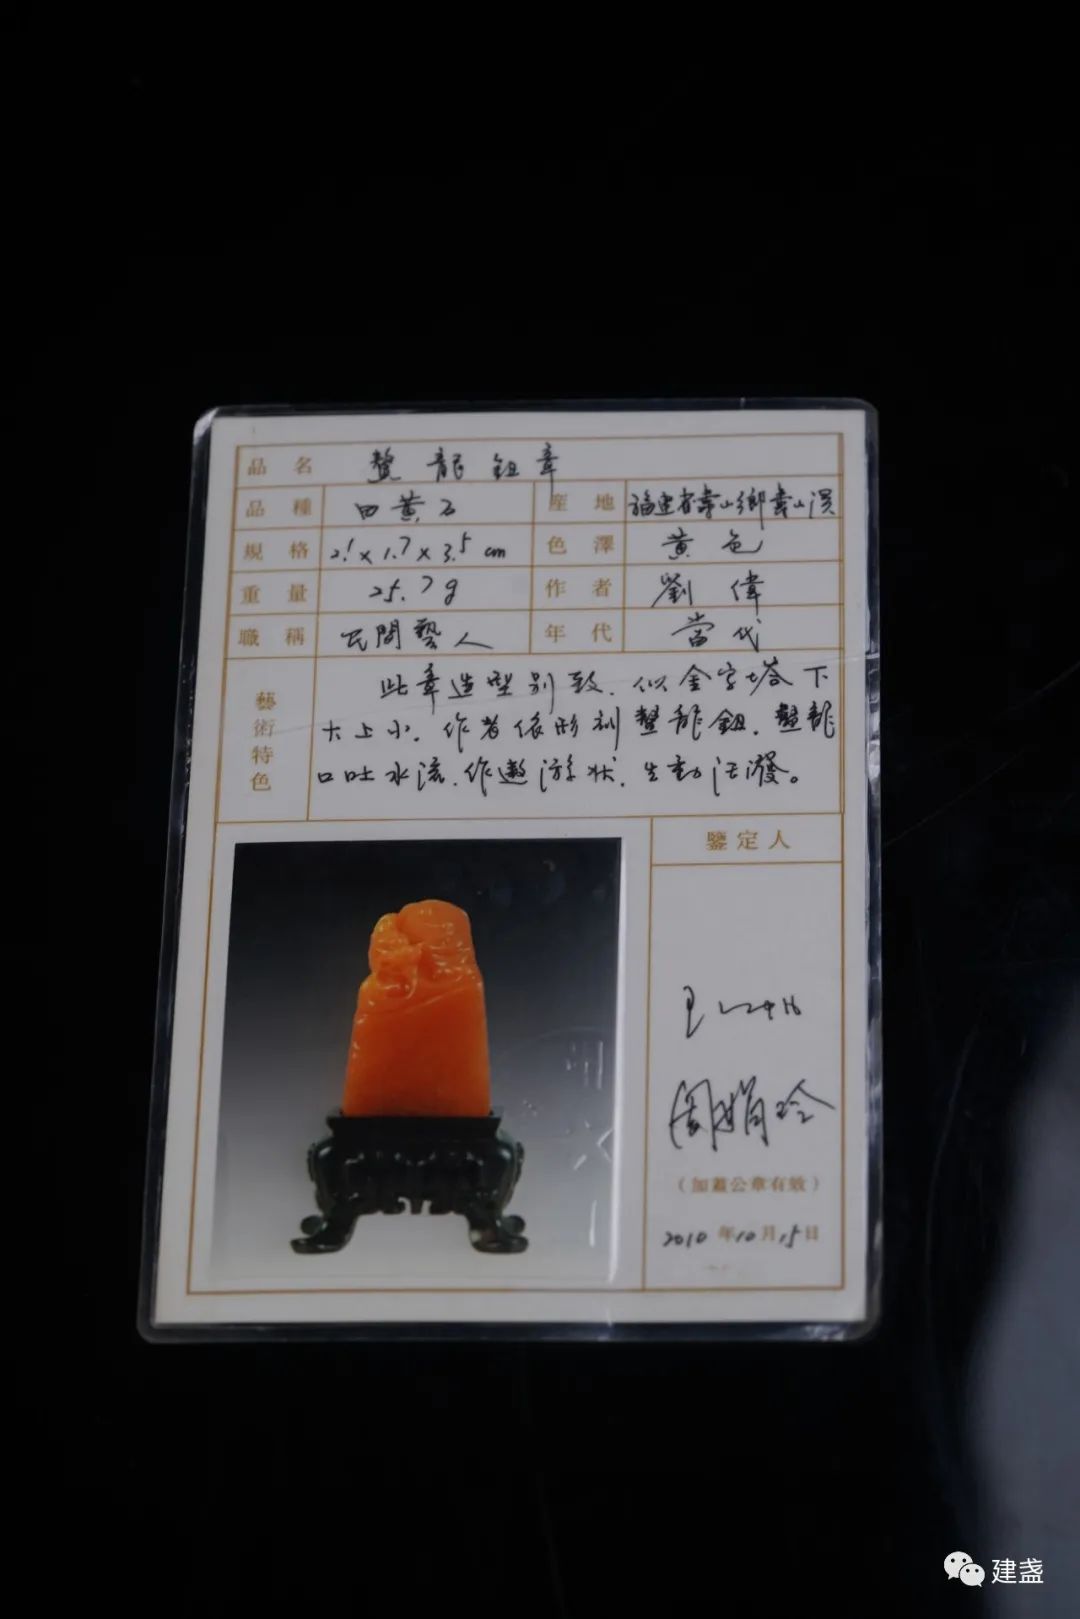 品名 鰲龍鈕章
品種 田黃石 産地 福建省壽山鄉壽山溪
規格 2.1×1.7×3.5cm 色澤 黃色
重量 25.7g 作者 劉偉
職稱 民間藝人 年代 當代
藝術特色
此章造型别致.似金字塔下
大上小.作者依形刻鰲龍鈕.鰲龍
口吐水流.作遨游状.生動活潑。
鑒定人
周娟玲
(加蓋公章有效)
2010年10月15日
建盏